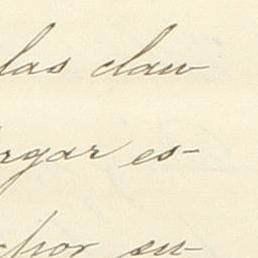 las clau
rgar es-
chor su-